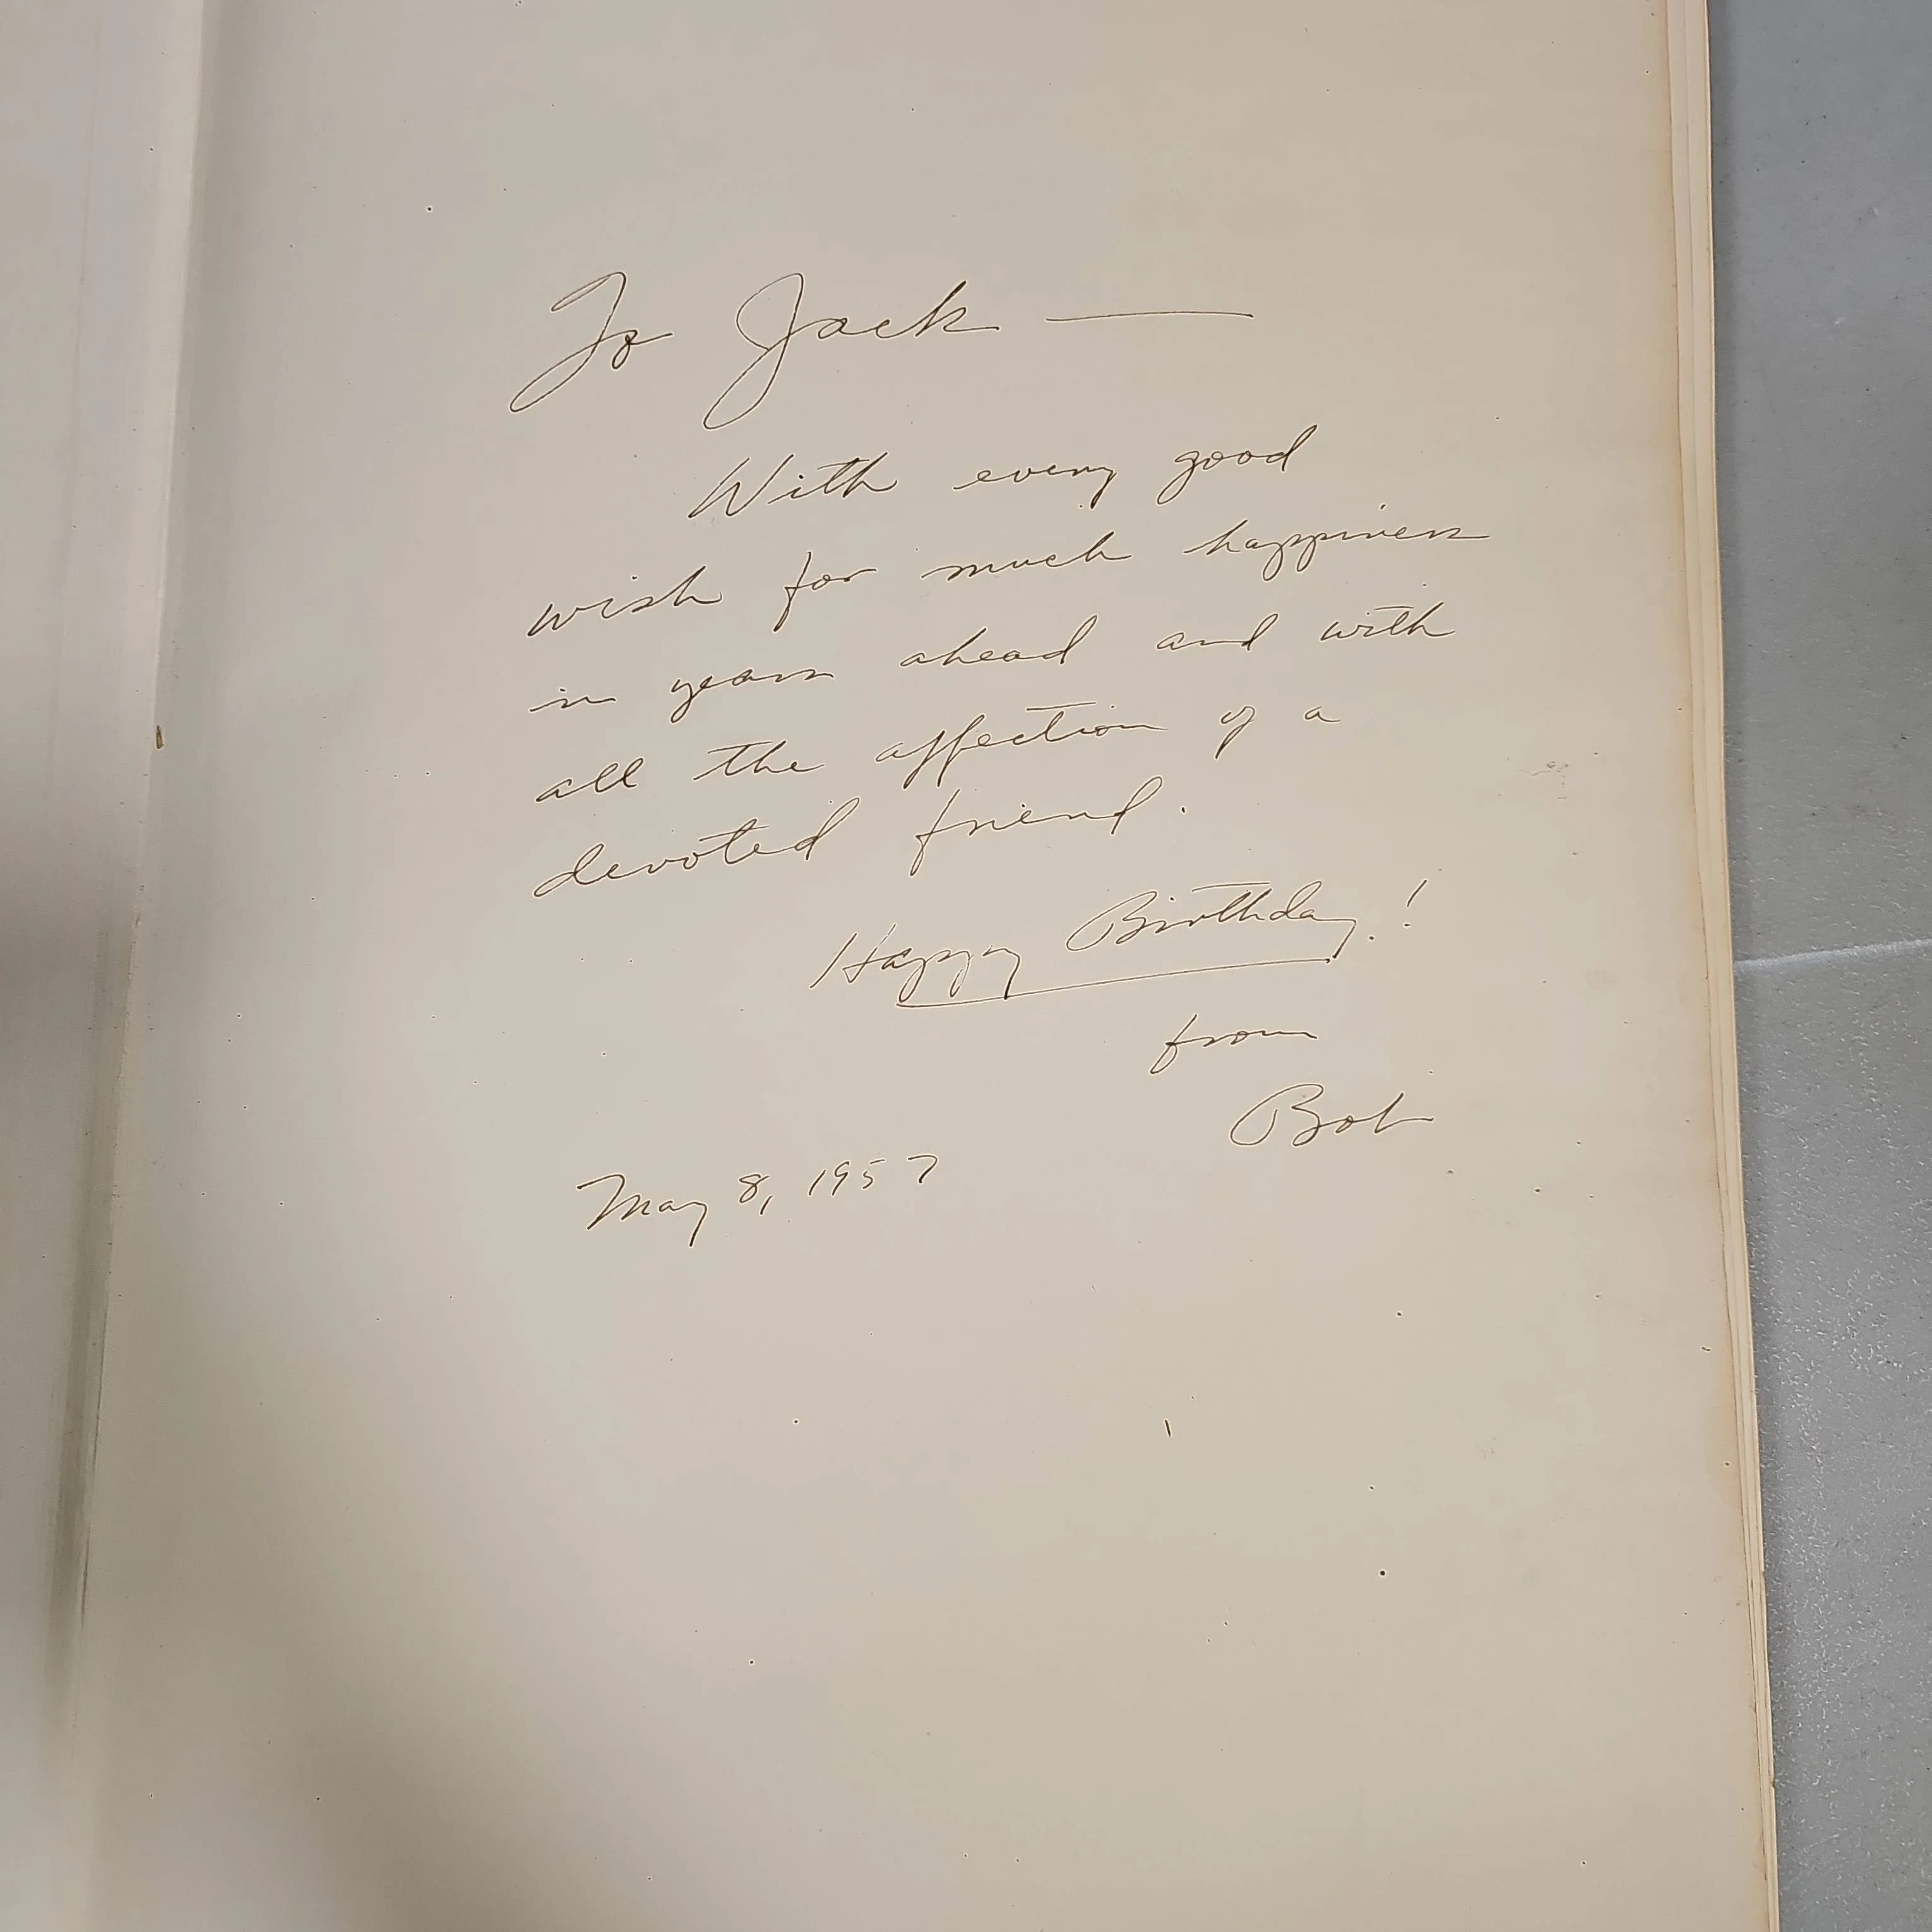 To Jack —
With every good
wish for much happiness
in years ahead and with
all the affection of a
devoted friend.
Happy Birthday!
from
Bob
May 8, 1957